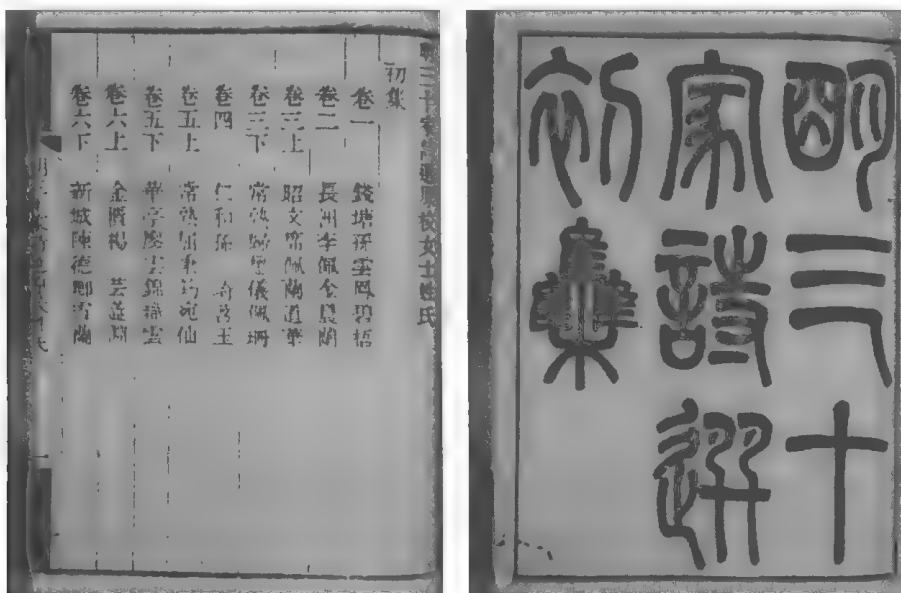 明三十
家詩選
初集
明三十家詩選校女士姓氏
初集
卷一 錢塘孫雲鳳碧梧
卷二 長洲李佩金晨蘭
卷三上 昭文席佩蘭道華
卷三下 常熟歸懋儀佩珊
卷四 仁和孫 玉
卷五上 常熟屈秉筠宛仙
卷五下 華亭廖雲錦織雲
卷六上 金匱楊 芸蕊淵
卷六下 新城陳德卿雪蘭